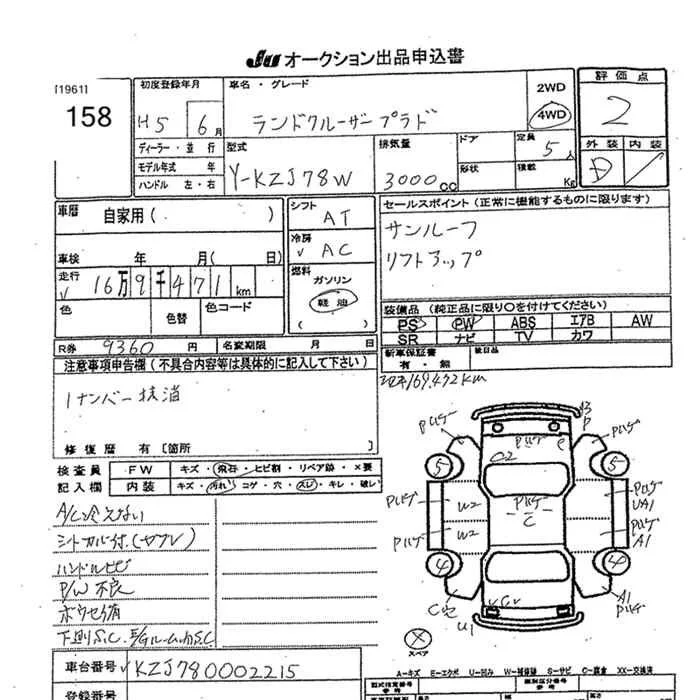 JU オークション出品申込書
[1961]
158
初度登録年月
H5 6月
車名・グレード
ランドクルーザープラド
2WD
4WD
評価点
2
外装 内装
D
ディーラー・並行
モデル年式 年
ハンドル 左・右
型式
Y-KZJ78W
排気量
3000cc
ドア
形状
定員
5人
積載 Kg
車歴 自家用( )
車検 年 月( 日)
走行
16万9千471km
色 色替 色コード
シフト
AT
冷房
AC
燃料
ガソリン
軽油
( )
セールスポイント(正常に機能するものに限ります)
サンルーフ
リフトアップ
装備品(純正品に限り○を付けてください)
PS PW ABS エアB AW
SR ナビ TV カワ
新車保証書
有・無
後日品
R券 9360円 名変期限 月 日
注意事項申告欄(不具合内容等は具体的に記入して下さい)
1ナンバー抹消
169,472km
修復歴 有[箇所 ]
検査員 FW キズ・飛石・ヒビ割・リペア跡・×要
記入欄 内装 キズ・汚れ・コゲ・穴・スレ・キレ・破レ
A/C冷えない
シートカバー付(ヤブレ)
ハンドルヒビ
P/W不良
下廻S.C. E/Gルーム内S.C
PハゲP
Pハゲ
Pハゲ
Pハゲ
5
5
Pハゲ
W2
Pハゲ
C
Pハゲ
UA1
Pハゲ
W2
Pハゲ
A1
4
4
A1
Pハゲ
U1
スペア
A-キズ E-エクボ U-凹み W-補修跡 S-サビ C-腐食 XX-交換済
車台番号 KZJ780002215
登録番号
型式指定番号
類別区分番号